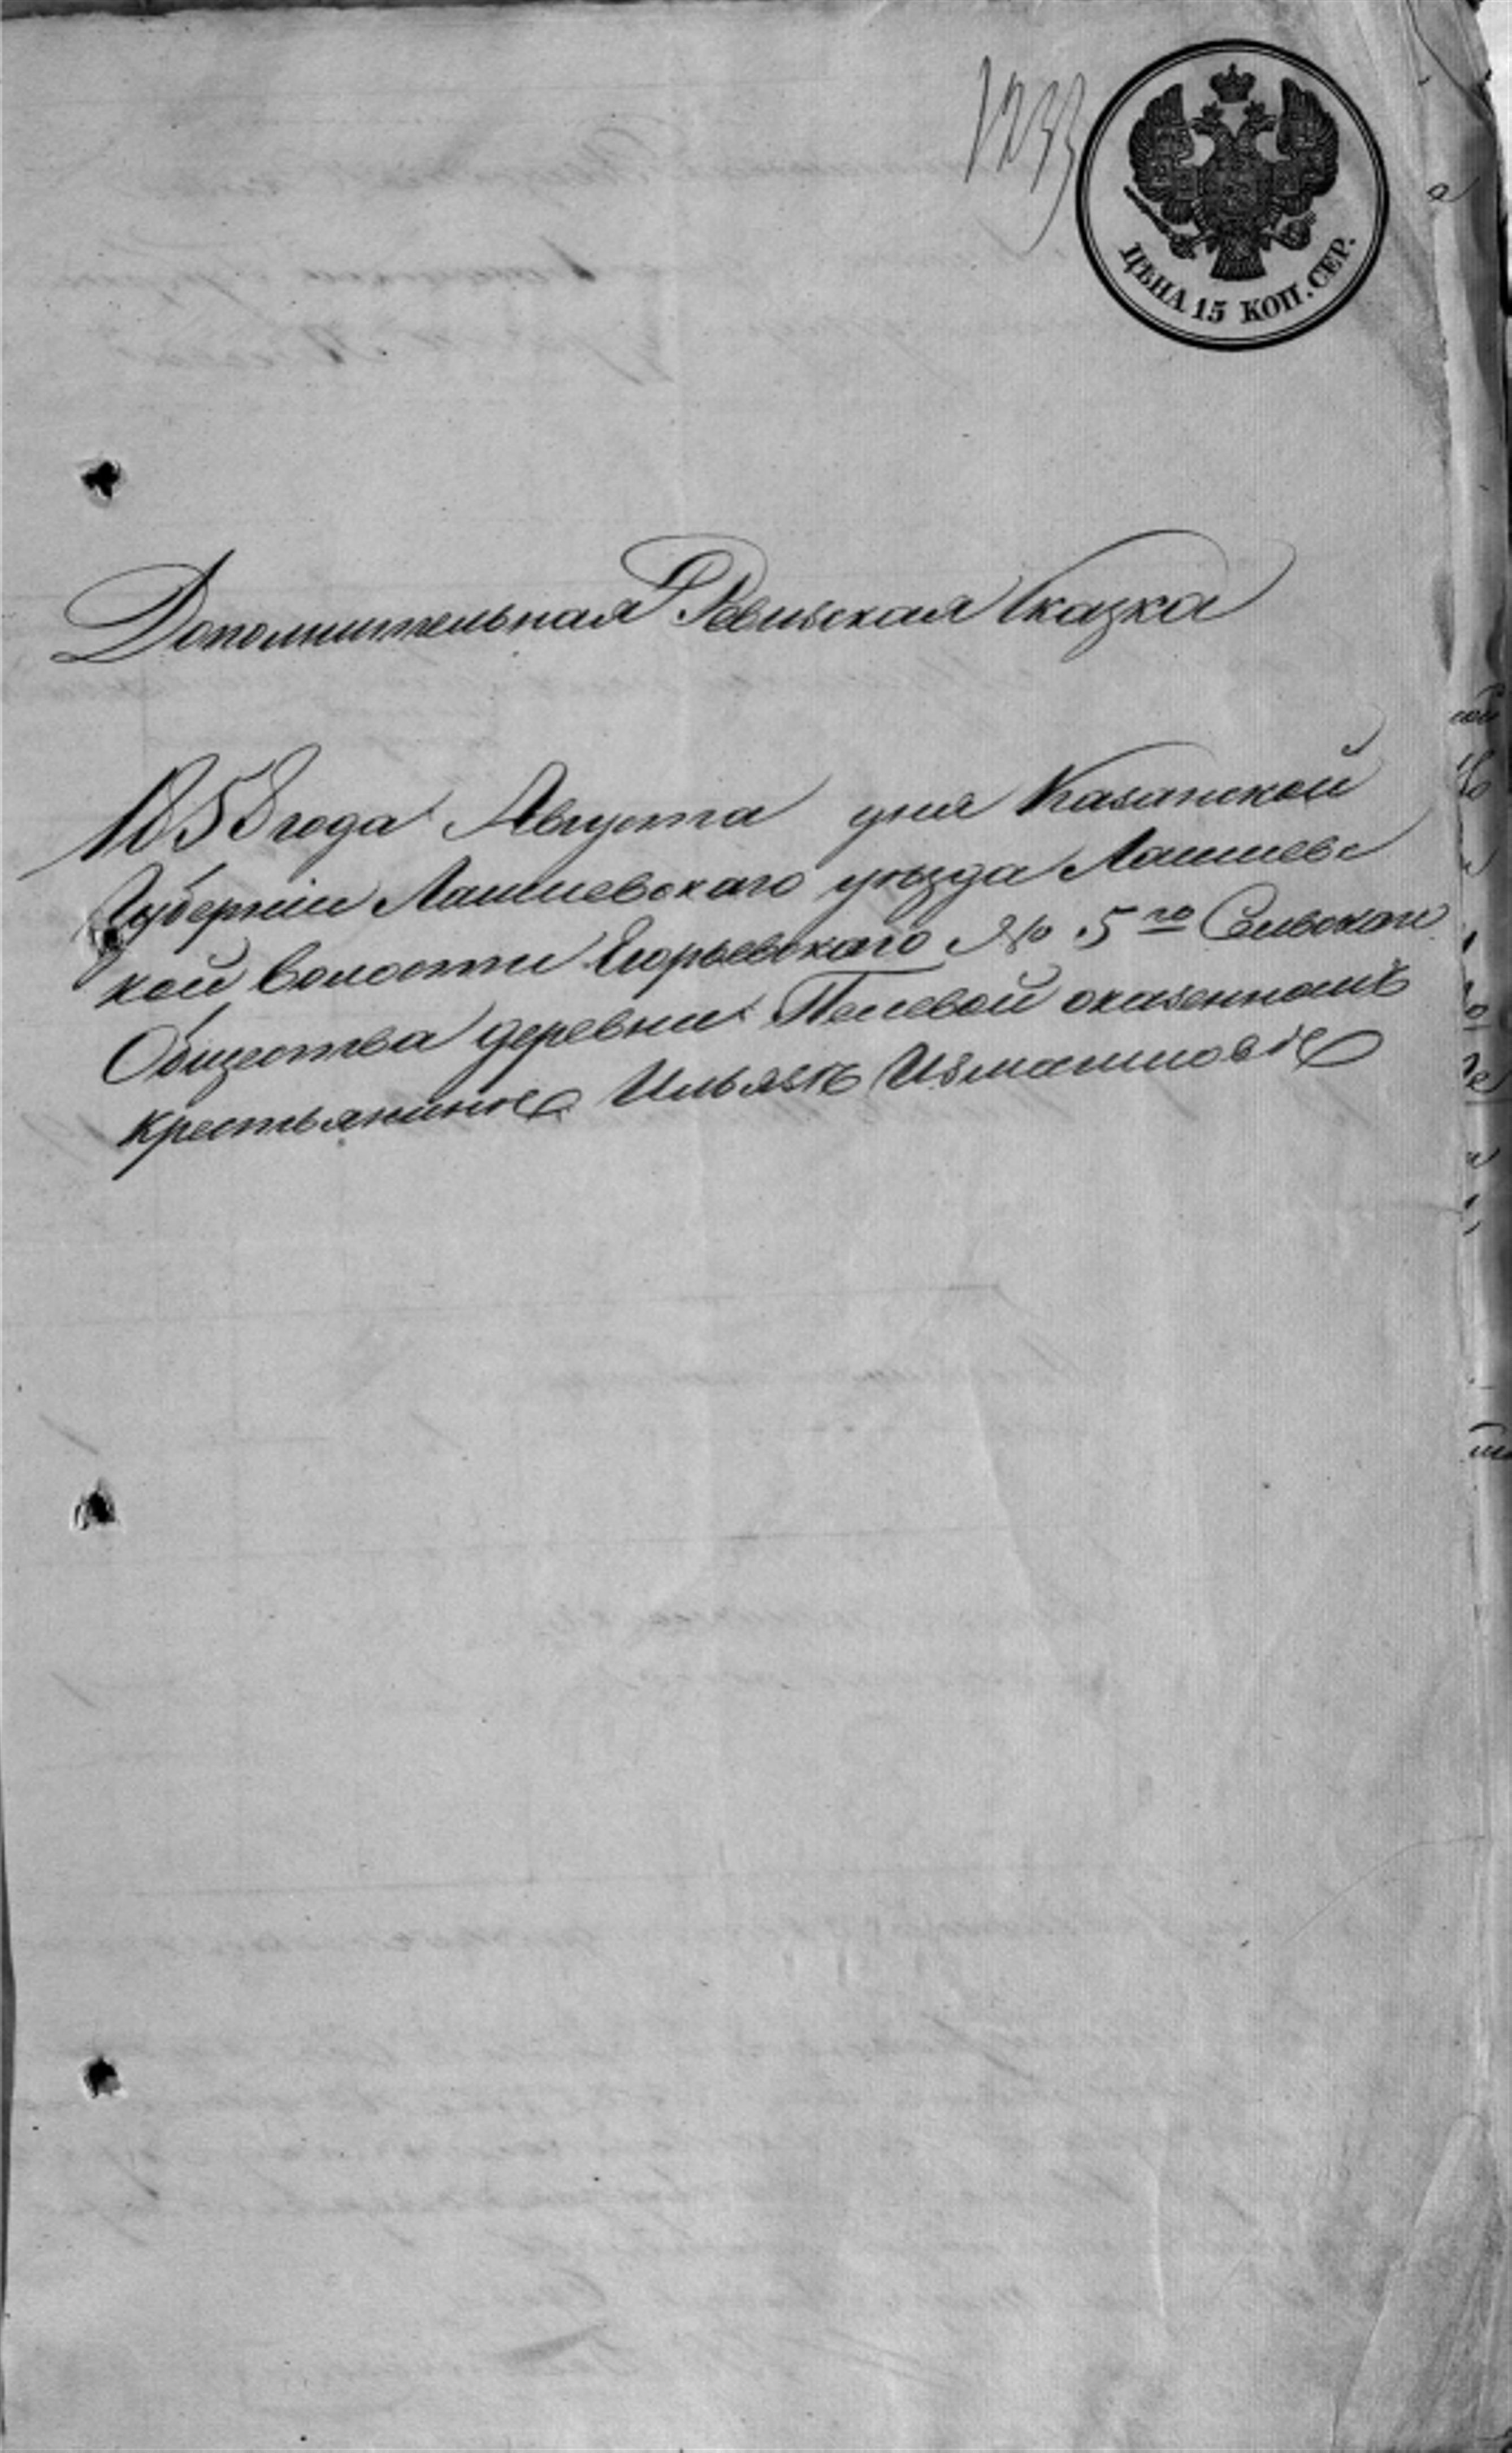 1233
ЦѢНА 15 КОП. СЕР.
Дополнительная Ревизская Сказка
1858 года Августа дня Казанской
Губерніи Лаишевского уѣзда Лаишевс
кой волости Егорьевскаго № 5го Сельскаго
Общества деревни Пелевой оказенномъ
крестьянинѣ Ильясѣ Измаиловѣ